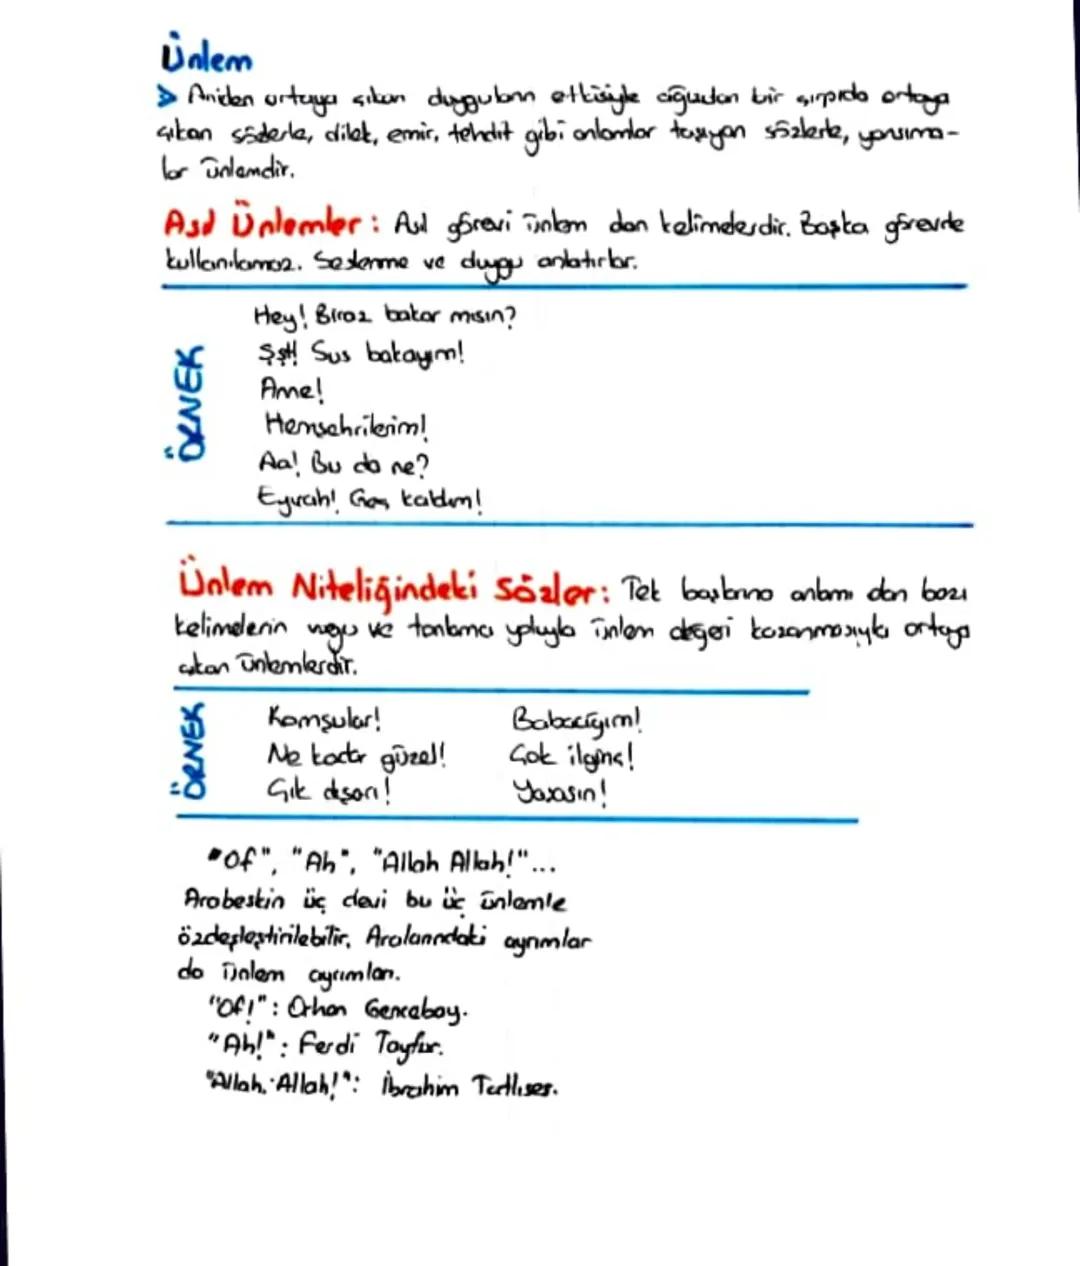 Ünlem
➤ Aniden ortaya çıkan duyguların etkisiyle ağızdan bir çırpıda ortaya
çıkan sözlerle, dilek, emir, tehdit gibi anlamlar taşıyan sözlerle, yansıma-
lar ünlemdir.
Asıl Ünlemler: Asıl görevi ünlem olan kelimelerdir. Başka görevde
kullanılamaz. Seslenme ve duygu anlatırlar.
ÖRNEK
Hey! Biraz bakar mısın?
Şşt! Sus bakayım!
Anne!
Hemşehrilerim!
Aa! Bu da ne?
Eyvah! Geç kaldım!
Ünlem Niteliğindeki Sözler: Tek başına anlamı olan bazı
kelimelerin vurgu ve tonlama yoluyla ünlem değeri kazanmasıyla ortaya
çıkan ünlemlerdir.
ÖRNEK
Komşular! Babacığım!
Ne kadar güzel! Çok ilginç!
Çık dışarı! Yaşasın!
"Of", "Ah", "Allah Allah!"...
Arabeskin üç devi bu üç ünlemle
özdeşleştirilebilir. Aralarındaki ayrımlar
da ünlem ayrımları.
"Of!": Orhan Gencebay.
"Ah!": Ferdi Tayfur.
"Allah Allah!": İbrahim Tatlıses.